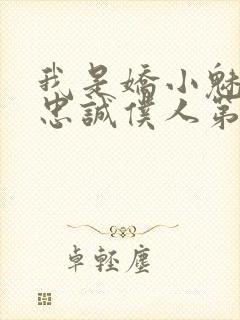 我是嬌小魅
忠誠僕人第
卓輕塵